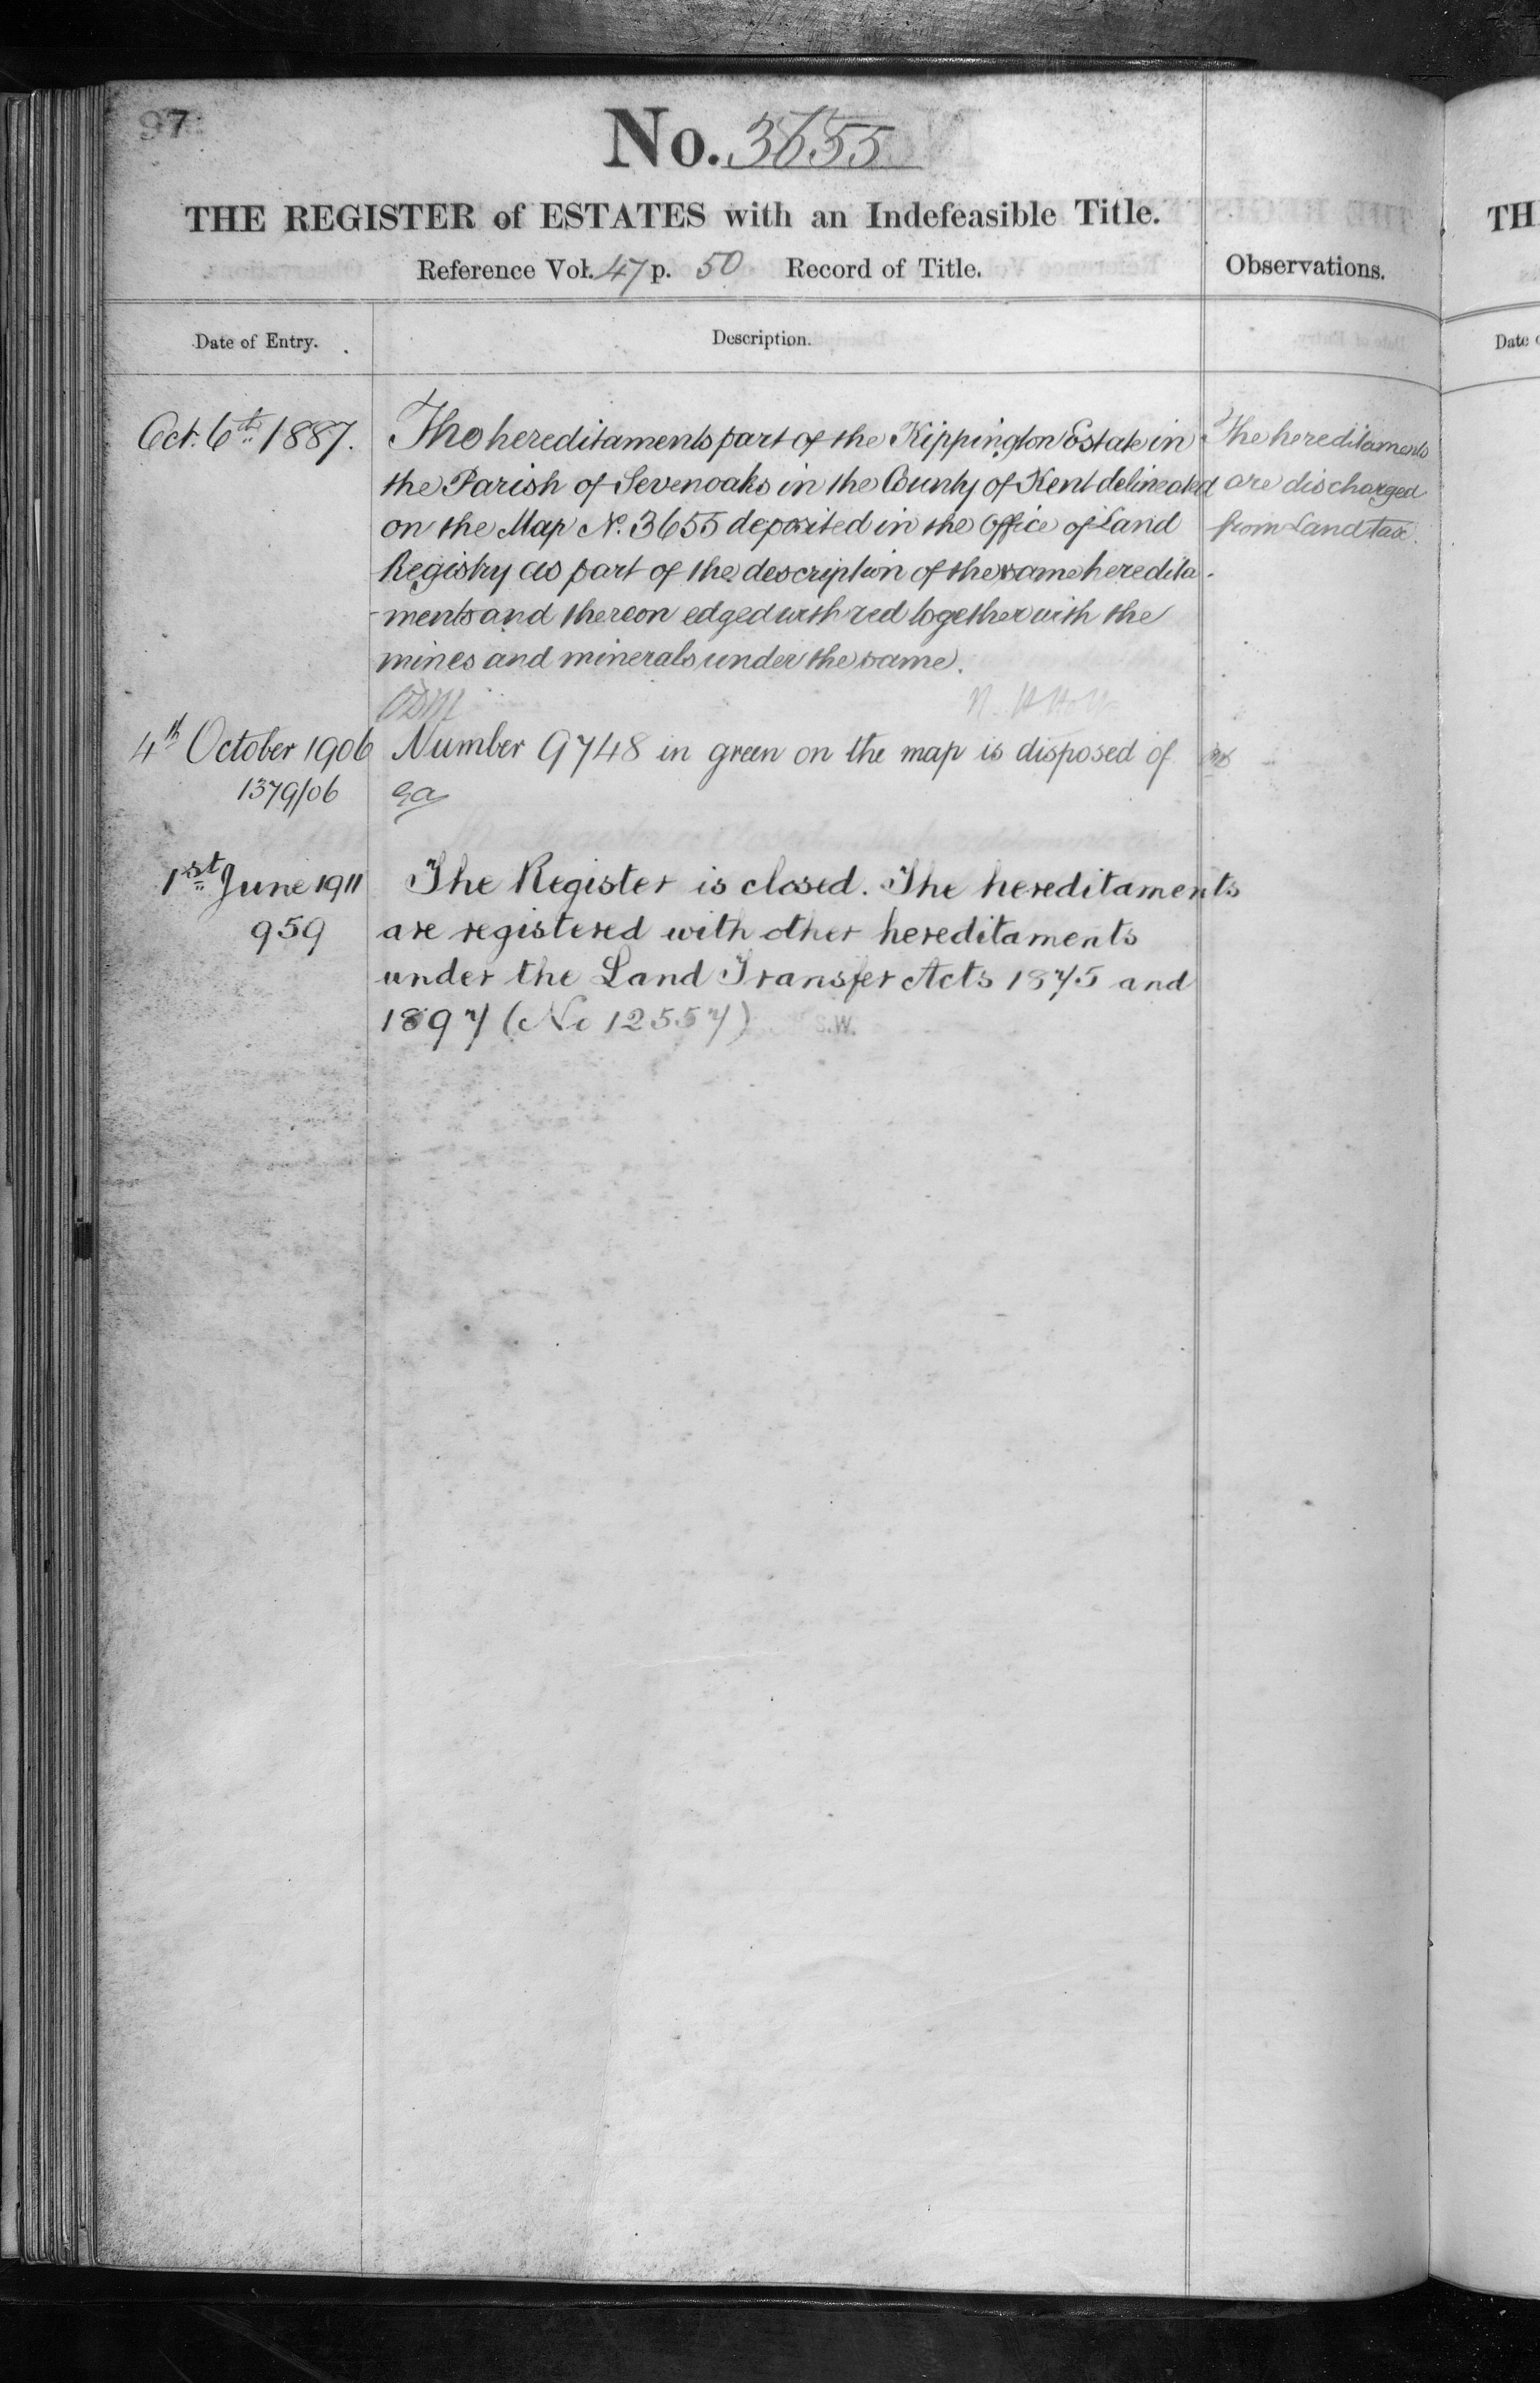 97
No. 3655
THE REGISTER of ESTATES with an Indefeasible Title.
Reference Vol. 47 p. 50 Record of Title.
Observations.
Date of Entry.
Description.
Oct. 6th 1887.
The hereditaments part of the Kippington Estate in
the Parish of Sevenoaks in the County of Kent delineated
on the Map No. 3655 deposited in the Office of Land
Registry as part of the description of the same heredita-
-ments and thereon edged with red together with the
mines and minerals under the same.
The hereditaments
are discharged
from Land tax.
4th October 1906
1379/06
Number 9748 in green on the map is disposed of
1st June 1911
959
The Register is closed. The hereditaments
are registered with other hereditaments
under the Land Transfer Acts 1875 and
1897 (No 12557) S.W.
TH
Date